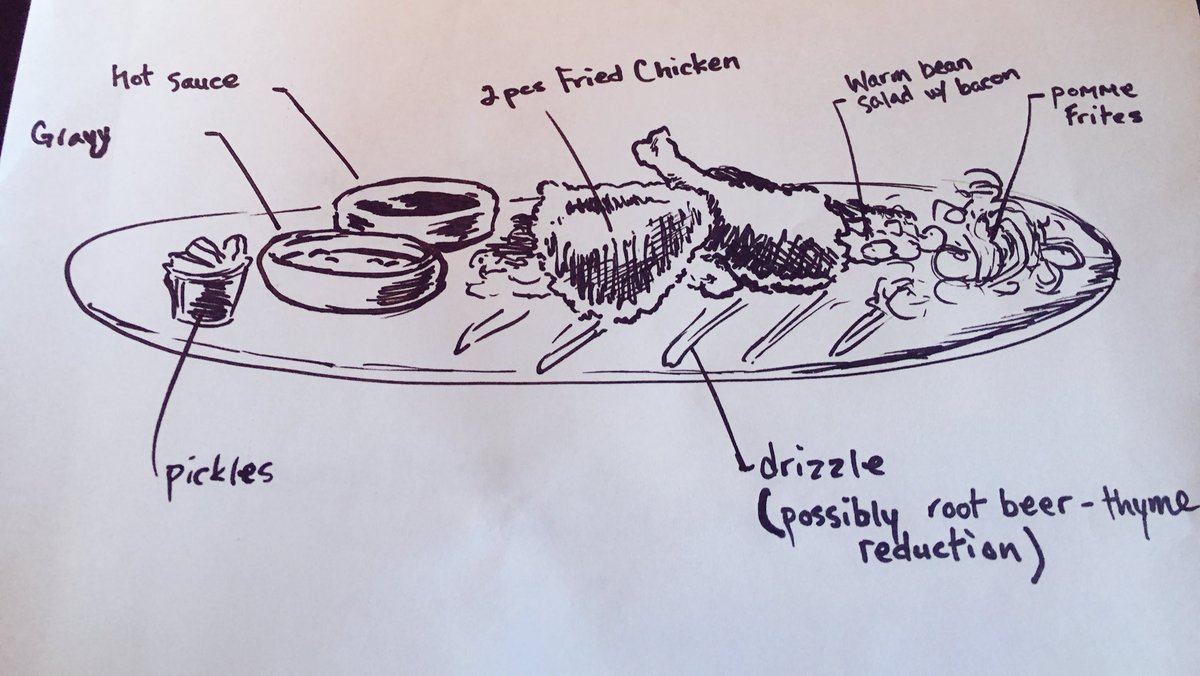 Hot Sauce
Gravy
2 pcs Fried Chicken
Warm bean
Salad w/ bacon
POMME
Frites
pickles
drizzle
(possibly root beer - thyme
reduction)